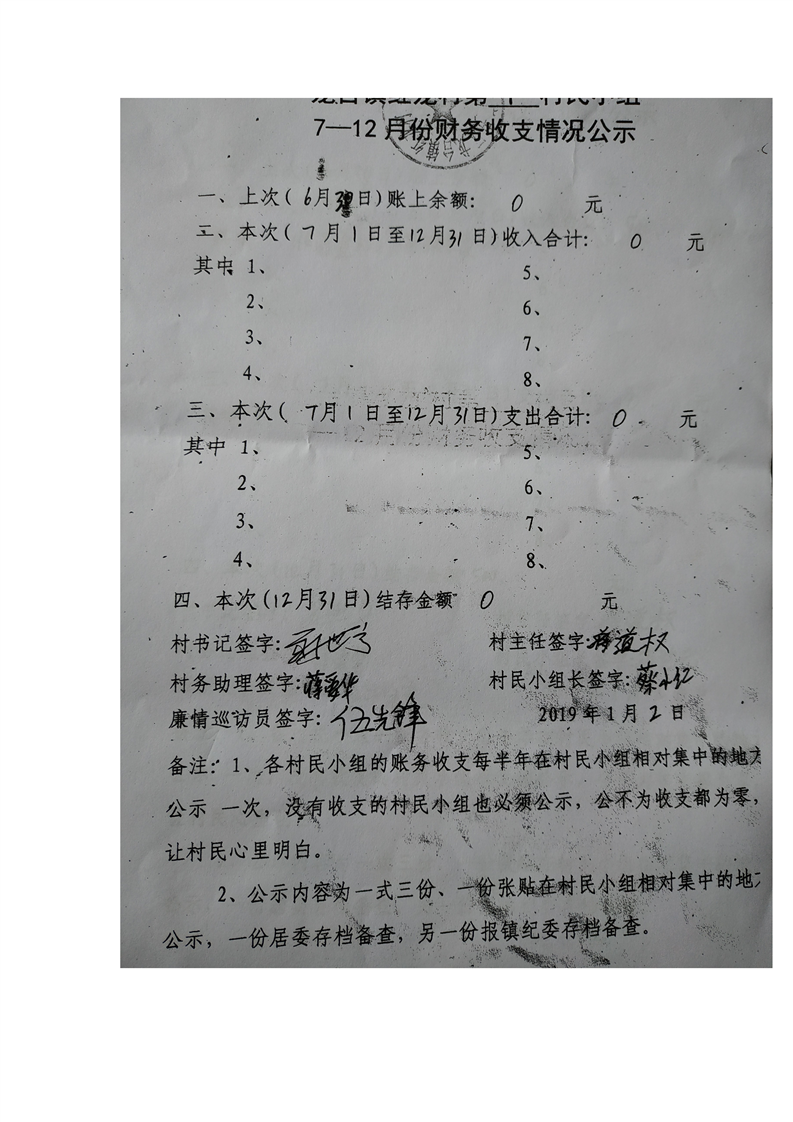 村民小组
7—12月份财务收支情况公示
一、上次(6月30日)账上余额: 0 元
二、本次(7月1日至12月31日)收入合计: 0 元
其中 1、 5、
2、 6、
3、 7、
4、 8、
三、本次(7月1日至12月31日)支出合计: 0 元
其中 1、 5、
2、 6、
3、 7、
4、 8、
四、本次(12月31日)结存金额 0 元
村书记签字: 村主任签字:蒋道权
村务助理签字: 村民小组长签字:
廉情巡访员签字:伍先锋 2019年1月2日
备注:1、各村民小组的账务收支每半年在村民小组相对集中的地方
公示 一次,没有收支的村民小组也必须公示,公不为收支都为零,
让村民心里明白。
2、公示内容为一式三份、一份张贴在村民小组相对集中的地方
公示,一份居委存档备查,另一份报镇纪委存档备查。